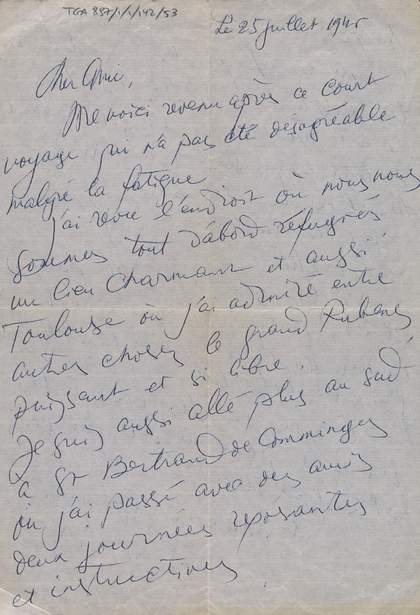 TGA 887/1/1/142/53
Le 25 juillet 1945
Cher Ami,
Me voici revenu après ce court
voyage qui n'a pas été désagréable
malgré la fatigue
j'ai revu l'endroit où nous nous
sommes tout d'abord réfugiés
un lieu charmant et aussi
Toulouse où j'ai admiré entre
autres choses le grand Rubens
puissant et si libre.
Je suis aussi allé plus au sud
à St Bertrand de Comminges
où j'ai passé avec des amis
deux journées reposantes
et instructives